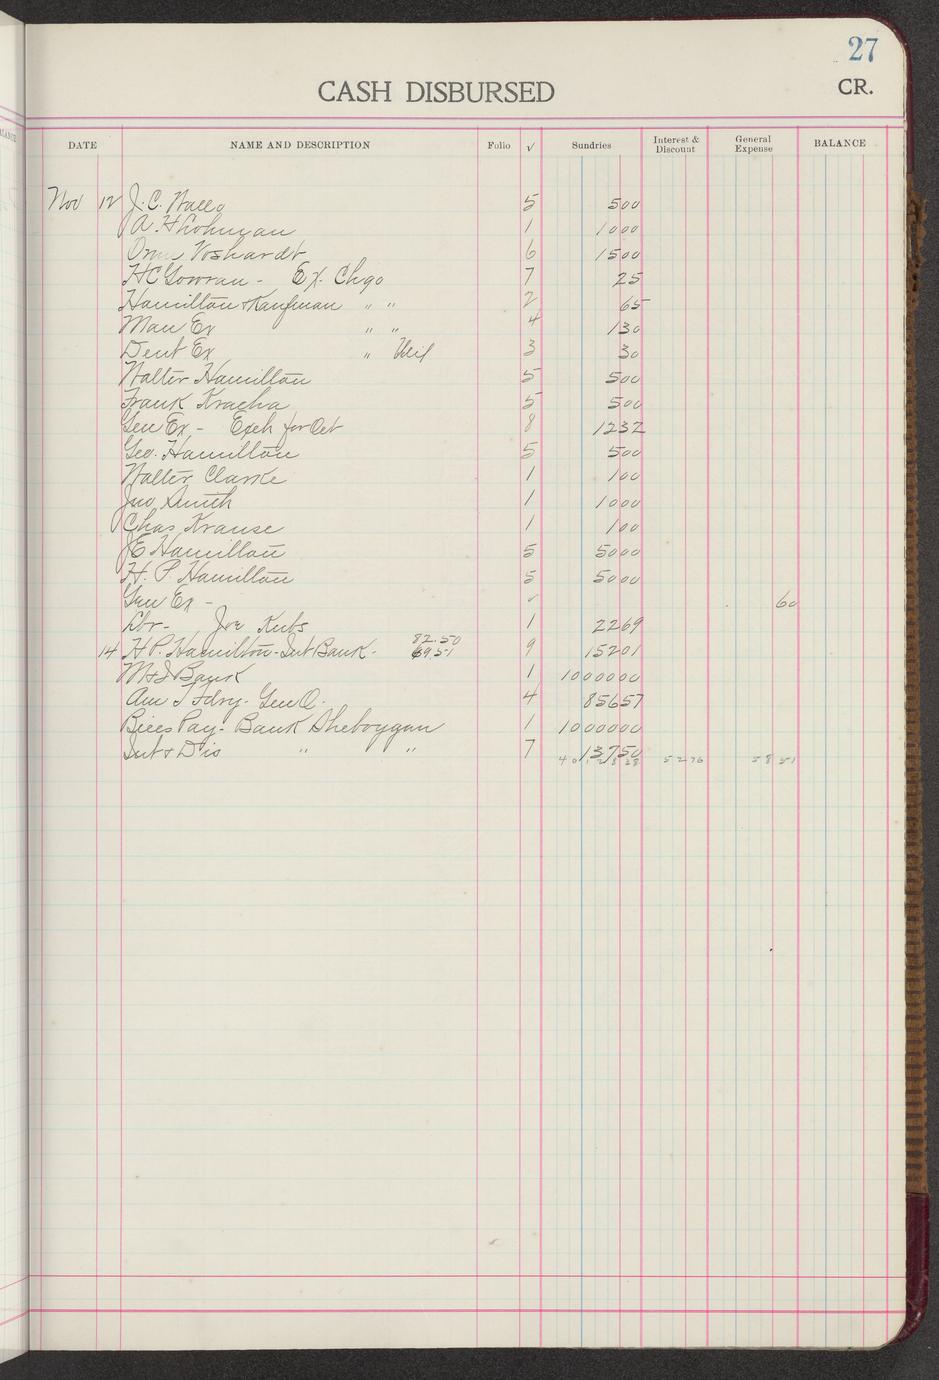 27
CASH DISBURSED
CR.
DATE NAME AND DESCRIPTION Folio √ Sundries Interest & Discount General Expense BALANCE
Nov 12 J. C. 5 500
A. H Lohman 1 1000
Voshardt 6 1500
HC Gowran - Ex. Chgo 7 25
Hamilton & Kaufman " " 2 65
Man Ex " " 4 130
Dent Ex " 3 30
Walter Hamilton 5 500
Frank Kracha 5 500
Gen Ex - Exch for Oct 8 1232
Geo. Hamilton 5 500
Walter Clarke 1 100
Jno Smith 1 1000
Chas Krause 1 100
JE Hamilton 5 5000
H. P. Hamilton 5 5000
Gen Ex - √ 60
Lbr - Joe Kubs 1 2269
82.50
14 H P. Hamilton - Int Bank - 69 51 9 15201
M & I Bank 1 1000000
Am T Fdry - Gen O. 4 85657
Bills Pay - Bank Sheboygan 1 1000000
Int & Dis " " 7 13750
5276 5851